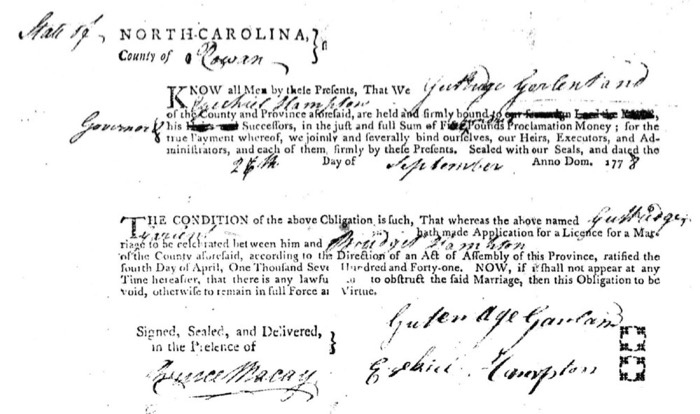 State of NORTH-CAROLINA,
County of Rowan
KNOW all Men by these Presents, That We Guttridge Garland and
Ezekiel Hampton
of the County and Province aforesaid, are held and firmly bound to
Governor
his Successors, in the just and full Sum of Pounds Proclamation Money; for the
true Payment whereof, we jointly and severally bind ourselves, our Heirs, Executors, and Ad-
ministrators, and each of them, firmly by these Presents. Sealed with our Seals, and dated the
Day of September Anno Dom. 1778
THE CONDITION of the above Obligation is such, That whereas the above named Guttridge
hath made Application for a Licence for a Mar-
riage to be celebrated between him and Bridget Hampton
of the County aforesaid, according to the Direction of an Act of Assembly of this Province, ratified the
fourth Day of April, One Thousand Seve Hundred and Forty-one. NOW, if it shall not appear at any
Time hereafter, that there is any lawfu to obstruct the said Marriage, then this Obligation to be
void, otherwise to remain in full Force a Virtue.
Gutendge Garland
Signed, Sealed, and Delivered,
in the Presence of
Ezekiel Hampton
Macay